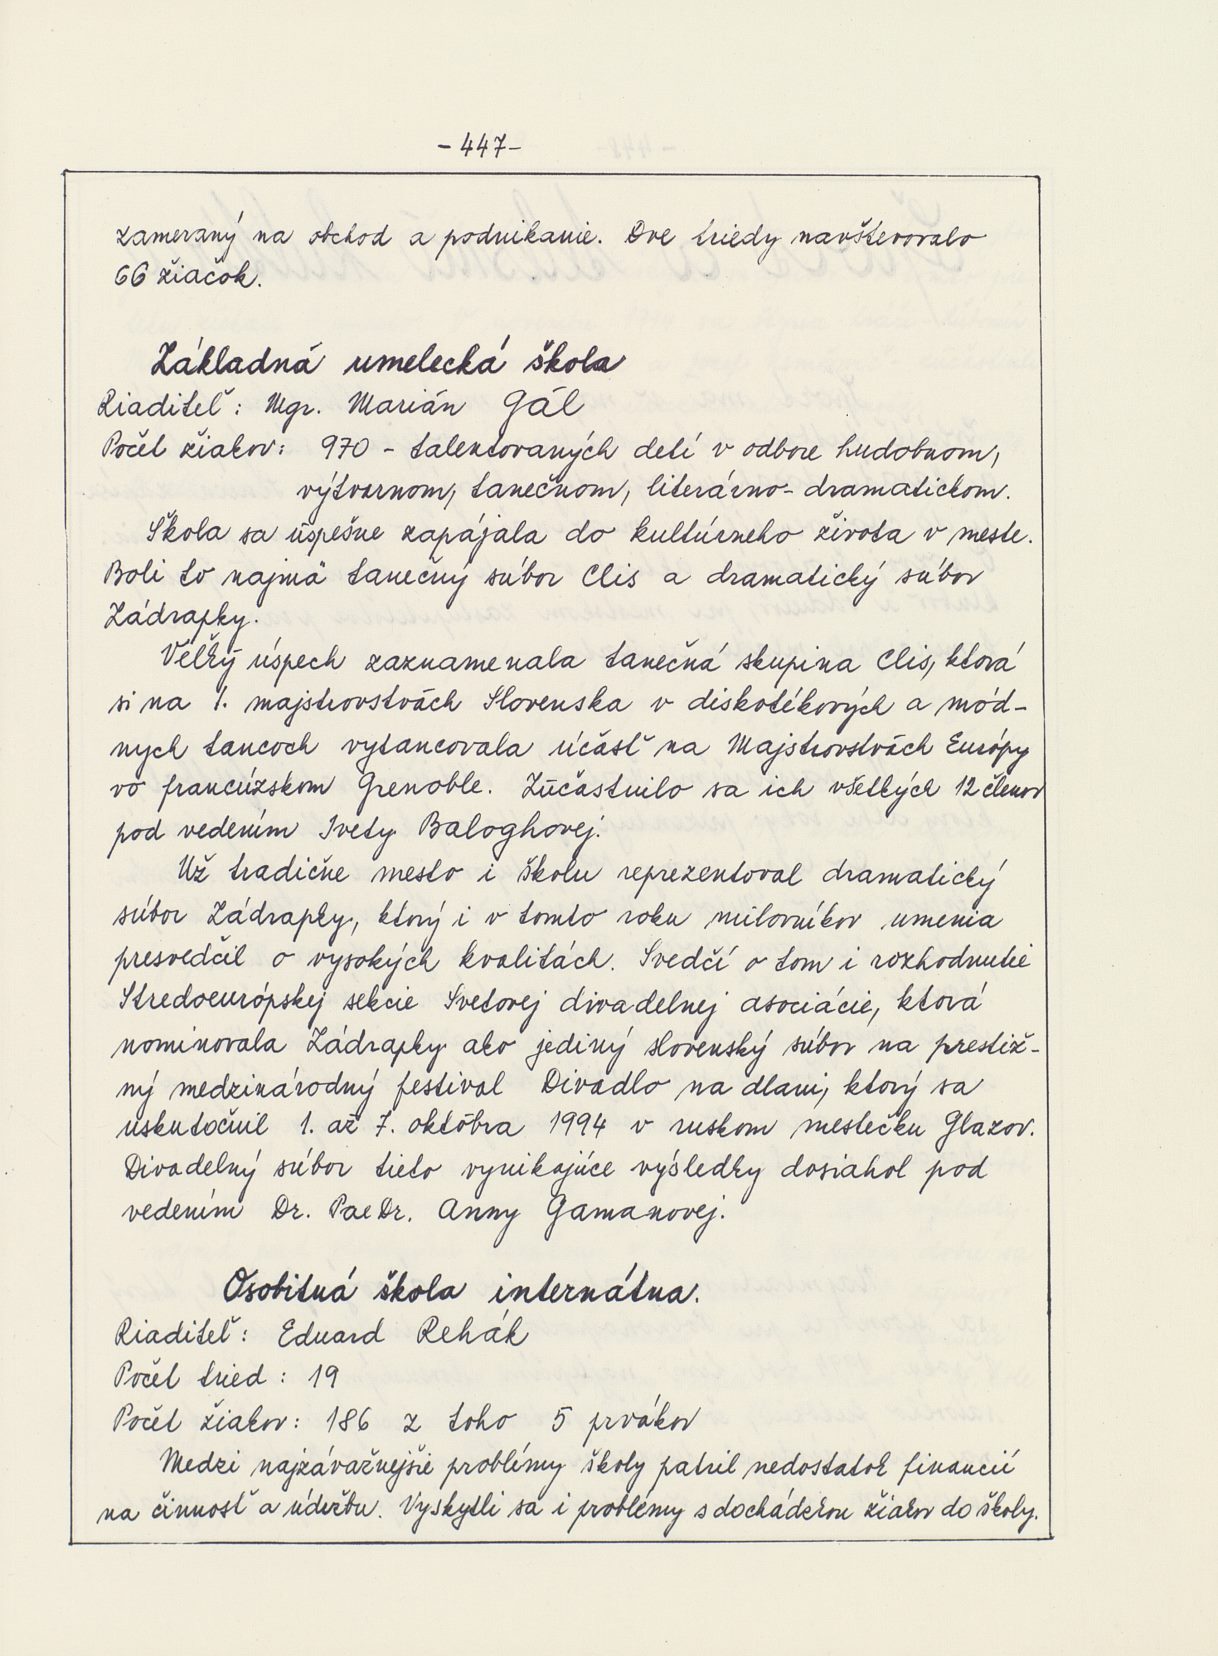 - 447 -
zameraný na obchod a podnikanie. Dve triedy navštevovalo
66 žiačok.
Základná umelecká škola
Riaditeľ: Mgr. Marián Gál
Počet žiakov: 970 - talentovaných detí v odbore hudobnom,
výtvarnom, tanečnom, literárno-dramatickom.
Škola sa úspešne zapájala do kultúrneho života v meste.
Boli to najmä tanečný súbor Clis a dramatický súbor
Zádrapky.
Veľký úspech zaznamenala tanečná skupina Clis, ktorá
si na 1. majstrovstvách Slovenska v diskotékových a mód-
nych tancoch vytancovala účasť na Majstrovstvách Európy
vo francúzskom Grenoble. Zúčastnilo sa ich všetkých 12 členov
pod vedením Ivety Baloghovej.
Už tradične mesto i školu reprezentoval dramatický
súbor Zádrapky, ktorý i v tomto roku milovníkov umenia
presvedčil o vysokých kvalitách. Svedčí o tom i rozhodnutie
Stredoeurópskej sekcie Svetovej divadelnej asociácie, ktorá
nominovala Zádrapky ako jediný slovenský súbor na prestíž-
ný medzinárodný festival Divadlo na dlani, ktorý sa
uskutočnil 1. až 7. októbra 1994 v ruskom mestečku Glazov.
Divadelný súbor tieto vynikajúce výsledky dosiahol pod
vedením Dr. PaeDr. Anny Gamanovej.
Osobitná škola internátna.
Riaditeľ: Eduard Rehák
Počet tried: 19
Počet žiakov: 186 z toho 5 prvákov
Medzi najzávažnejšie problémy školy patril nedostatok financií
na činnosť a údržbu. Vyskytli sa i problémy s dochádzkou žiakov do školy.